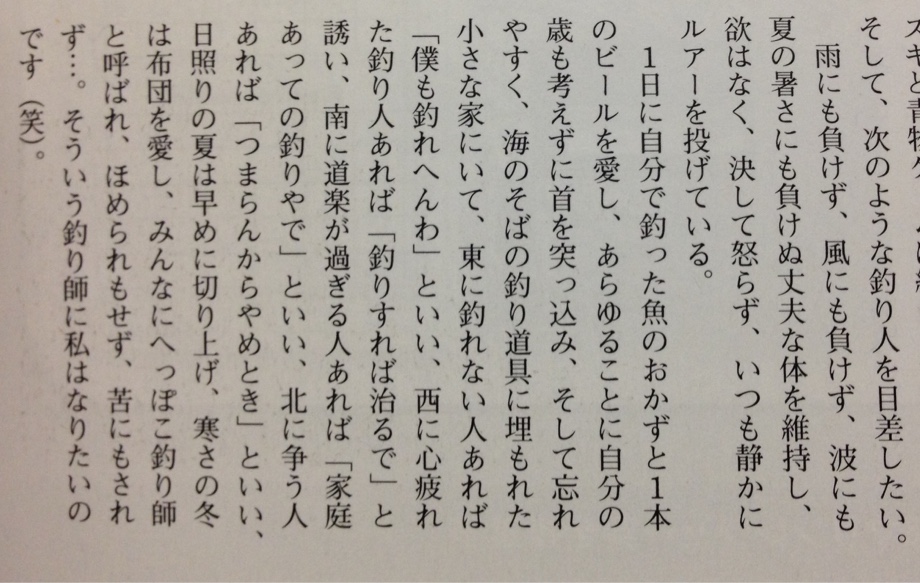 そして、次のような釣り人を目差したい。
雨にも負けず、風にも負けず、波にも
夏の暑さにも負けぬ丈夫な体を維持し、
欲はなく、決して怒らず、いつも静かに
ルアーを投げている。
1日に自分で釣った魚のおかずと1本
のビールを愛し、あらゆることに自分の
歳も考えずに首を突っ込み、そして忘れ
やすく、海のそばの釣り道具に埋もれた
小さな家にいて、東に釣れない人あれば
「僕も釣れへんわ」といい、西に心疲れ
た釣り人あれば「釣りすれば治るで」と
誘い、南に道楽が過ぎる人あれば「家庭
あっての釣りやで」といい、北に争う人
あれば「つまらんからやめとき」といい、
日照りの夏は早めに切り上げ、寒さの冬
は布団を愛し、みんなにへっぽこ釣り師
と呼ばれ、ほめられもせず、苦にもされ
ず…。そういう釣り師に私はなりたいの
です（笑）。